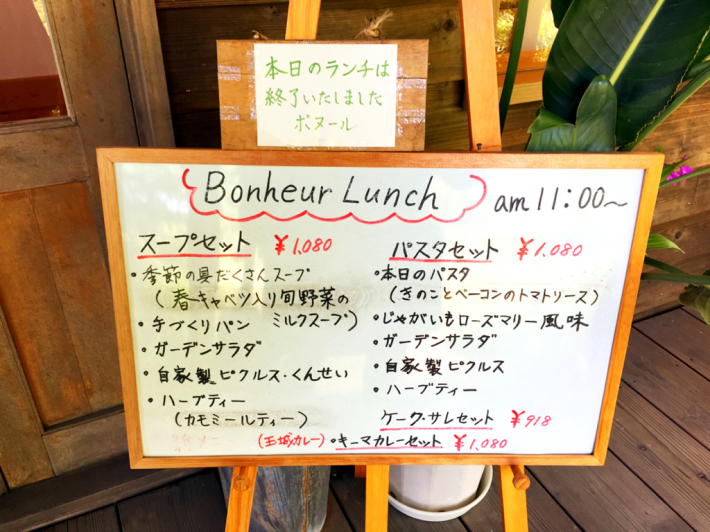 本日のランチは
終了いたしました
ボヌール
Bonheur Lunch am 11:00~
スープセット ¥1,080
・季節の具だくさんスープ
(春キャベツ入り旬野菜の
ミルクスープ)
・手づくりパン
・ガーデンサラダ
・自家製ピクルス・くんせい
・ハーブティー
(カモミールティー)
パスタセット ¥1,080
・本日のパスタ
(きのことベーコンのトマトソース)
・じゃがいもローズマリー風味
・ガーデンサラダ
・自家製ピクルス
・ハーブティー
ケーク・サレセット ¥918
(玉城カレー)・キーマカレーセット ¥1,080